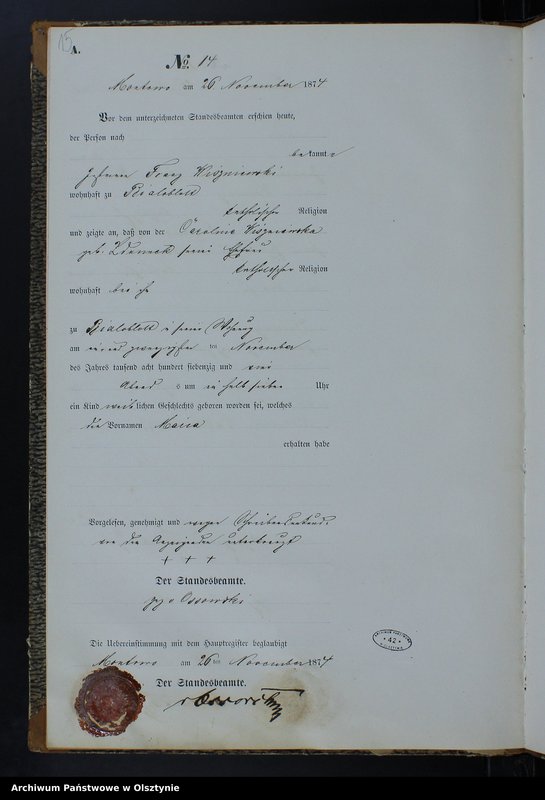 15
A.
No. 14
Montowo am 26 November 1874
Vor dem unterzeichneten Standesbeamten erschien heute,
der Person nach
bekannte
Franz Wiszniewski
wohnhaft zu Bialoblott
katholischer Religion
und zeigte an, daß von der Carolina Wiszniewska
geb. seine Ehefrau
katholischer Religion
wohnhaft bei ihm
zu Bialoblott in seiner Wohnung
am ein und zwanzigsten ten November
des Jahres tausend acht hundert siebenzig und vier
Abends um halb sieben Uhr
ein Kind weiblichen Geschlechts geboren worden sei, welches
die Vornamen Maria
erhalten habe
Vorgelesen, genehmigt und wegen Schreibensunkunde
von dem Anzeigenden unterkreuzt
+ + +
Der Standesbeamte.
gez v Ossowski
Die Uebereinstimmung mit dem Hauptregister beglaubigt
Montowo am 26ten November 1874
Der Standesbeamte.
v Ossowski
42
Archiwum Państwowe w Olsztynie